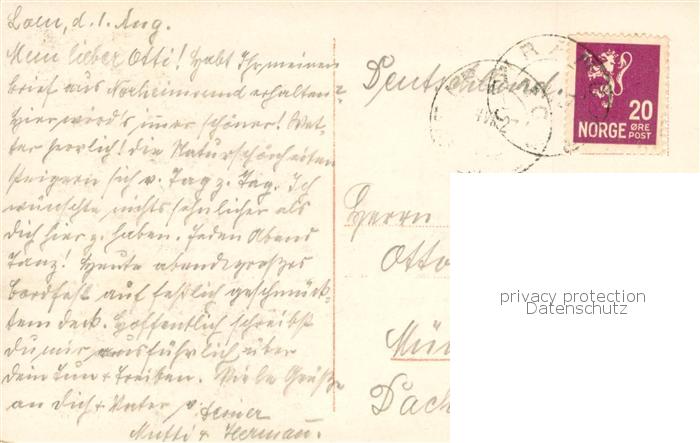 Loen, d. 1. Aug.
Mein lieber Otti! Habt Ihr meinen
Brief aus Norheimsund erhalten?
Hier wird's immer schöner! Wet-
ter herrlich! Die Naturschönheiten
steigern sich v. Tag z. Tag. Ich
wünschte nichts sehnlicher als
Dich hier z. haben. Jeden Abend
Tanz! Heute abend großes
Bordfest auf festlich geschmück-
tem Deck. Hoffentlich schreibst
Du mir ausführlich über
Dein Tun + Treiben. Viele Grüße
an Dich + Vater v. Deiner
Mutti + Hermann.
Deutschland
20
NORGE ØRE
POST
Herrn
Otto
Mün
Dach
privacy protection
Datenschutz